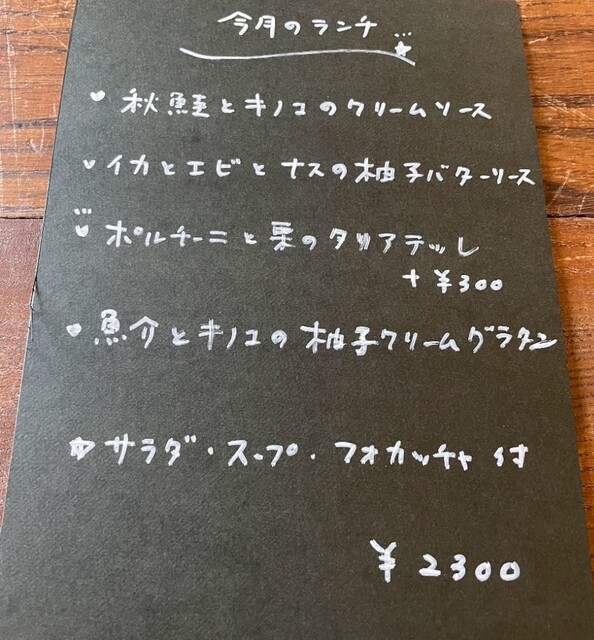 今月のランチ
秋鮭とキノコのクリームソース
イカとエビとナスの柚子バターソース
ポルチーニと栗のタリアテッレ
+ ¥300
魚介とキノコの柚子クリームグラタン
サラダ・スープ・フォカッチャ付
¥2300